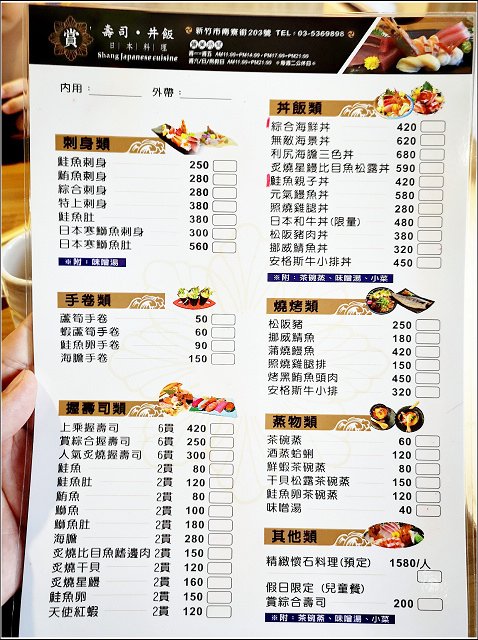 賞 壽司·丼飯
日本料理
Shang Japanese cuisine
新竹市南寮街203號 TEL：03-5369898
內用：
外帶：
刺身類
鮭魚刺身 250
鮪魚刺身 280
綜合刺身 280
特上刺身 380
鮭魚肚 380
日本寒鰤魚刺身 300
日本寒鰤魚肚 560
※附：味噌湯
手卷類
蘆筍手卷 50
蝦蘆筍手卷 60
鮭魚卵手卷 90
海膽手卷 150
握壽司類
上乘握壽司 6貫 420
賞綜合握壽司 6貫 250
人氣炙燒握壽司 6貫 300
鮭魚 2貫 80
鮭魚肚 2貫 120
鮪魚 2貫 80
鰤魚 2貫 100
鰤魚肚 2貫 180
海膽 2貫 280
炙燒比目魚鰭邊肉 2貫 150
炙燒干貝 2貫 120
炙燒星鰻 2貫 160
鮭魚卵 2貫 150
天使紅蝦 2貫 120
丼飯類
綜合海鮮丼 420
無敵海景丼 620
利尻海膽三色丼 680
炙燒星鰻比目魚松露丼 590
鮭魚親子丼 420
元氣鰻魚丼 580
照燒雞腿丼 280
日本和牛丼(限量) 480
松阪豬肉丼 380
挪威鯖魚丼 320
安格斯牛小排丼 450
※附：茶碗蒸、味噌湯、小菜
燒烤類
松阪豬 250
挪威鯖魚 180
蒲燒鰻魚 420
照燒雞腿排 150
烤黑鮪魚頭肉 450
安格斯牛小排 320
蒸物類
茶碗蒸 60
酒蒸蛤蜊 120
鮮蝦茶碗蒸 80
干貝松露茶碗蒸 150
鮭魚卵茶碗蒸 120
味噌湯 40
其他類
精緻懷石料理(預定) 1580/人
假日限定 (兒童餐)
賞綜合壽司 200
※附：茶碗蒸、味噌湯、小菜